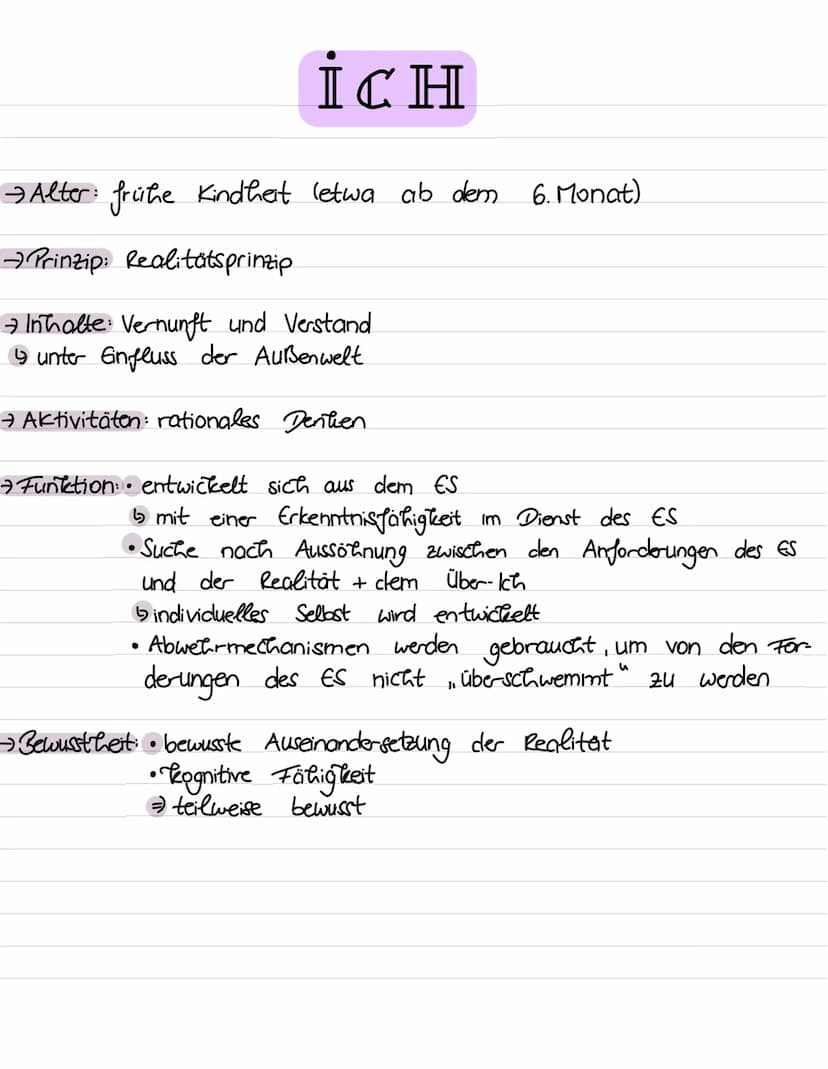 iCH
→ Alter: frühe Kindheit (etwa ab dem 6. Monat)
→ Prinzip: Realitätsprinzip
→ Inhalte: Vernunft und Verstand
↳ unter Einfluss der Außenwelt
→ Aktivitäten: rationales Denken
→ Funktion: • entwickelt sich aus dem ES
↳ mit einer Erkenntnisfähigkeit im Dienst des ES
• Suche nach Aussöhnung zwischen den Anforderungen des ES
und der Realität + dem Über-Ich
↳ individuelles Selbst wird entwickelt
• Abwehrmechanismen werden gebraucht, um von den For-
derungen des ES nicht „überschwemmt“ zu werden
→ Bewusstheit: • bewusste Auseinandersetzung der Realität
• kognitive Fähigkeit
⇒ teilweise bewusst